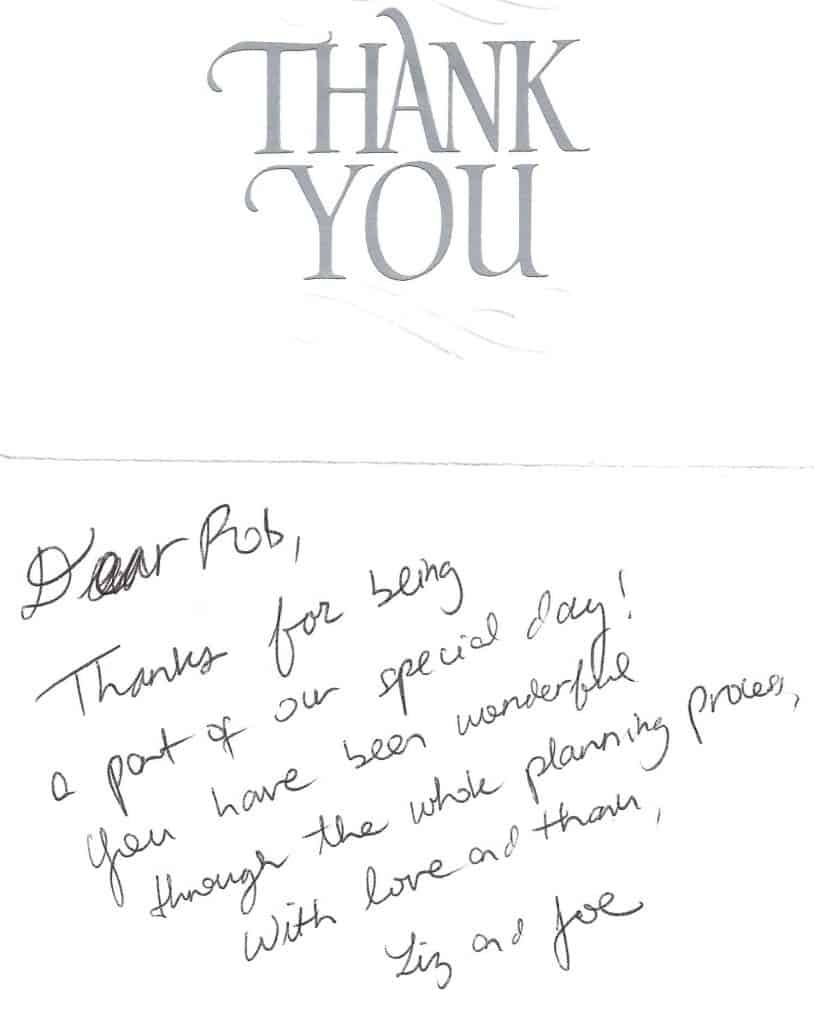 THANK
YOU
Dear Rob,
Thanks for being
a part of our special day!
You have been wonderful
through the whole planning process,
With love and thanks,
Liz and Joe